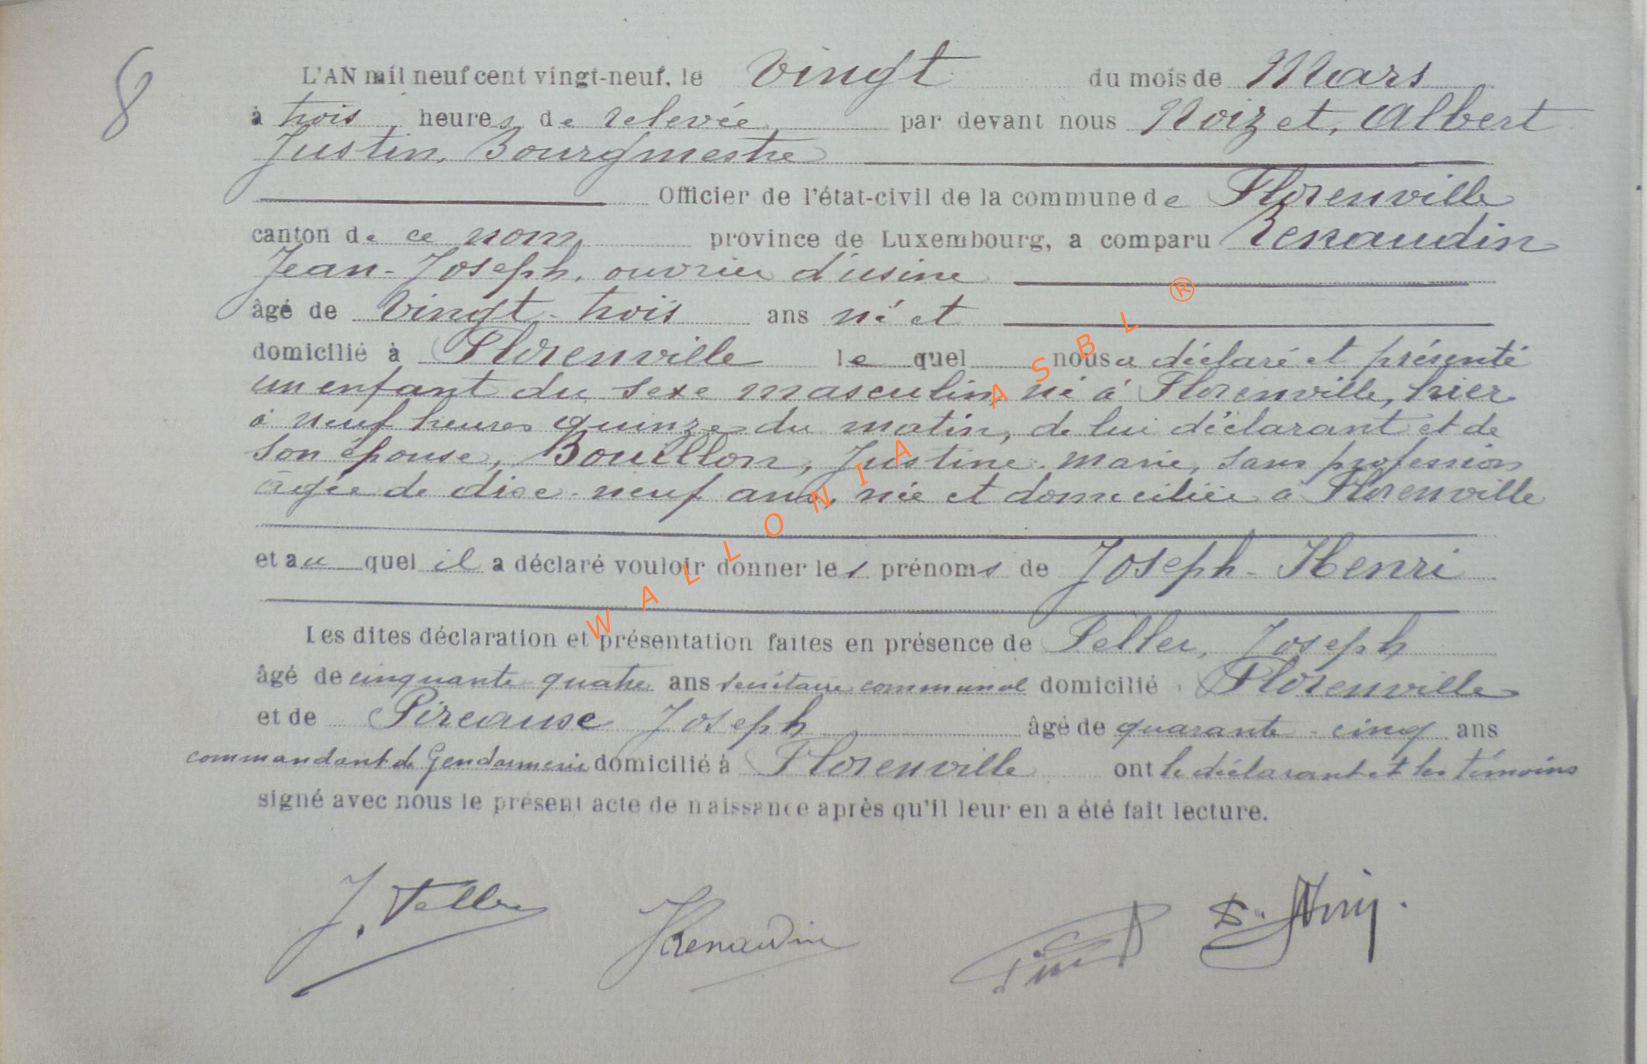 8
L'AN mil neuf cent vingt-neuf, le vingt du mois de Mars
à trois heures de relevée par devant nous Noizet, Albert
Justin, Bourgmestre
Officier de l'état-civil de la commune de Florenville
canton de ce nom province de Luxembourg, a comparu Renaudin
Jean-Joseph, ouvrier d'usine
âgé de vingt-trois ans né et
domicilié à Florenville le quel nous a déclaré et présenté
un enfant du sexe masculin né à Florenville, hier
à neuf heures quinze du matin, de lui déclarant et de
son épouse, Bouillon, Justine. Marie, sans profession
âgée de dixe-neuf ans, née et domiciliée à Florenville
et au quel il a déclaré vouloir donner les prénoms de Joseph-Henri
Les dites déclaration et présentation faites en présence de Peller, Joseph
âgé de cinquante-quatre ans secrétaire communal domicilié Florenville
et de Pireause Joseph âgé de quarante-cinq ans
commandant de Gendarmerie domicilié à Florenville ont le déclarant et les témoins
signé avec nous le présent acte de naissance après qu'il leur en a été fait lecture.
J. Peller JRenaudin
WALLONIA ASBL ®